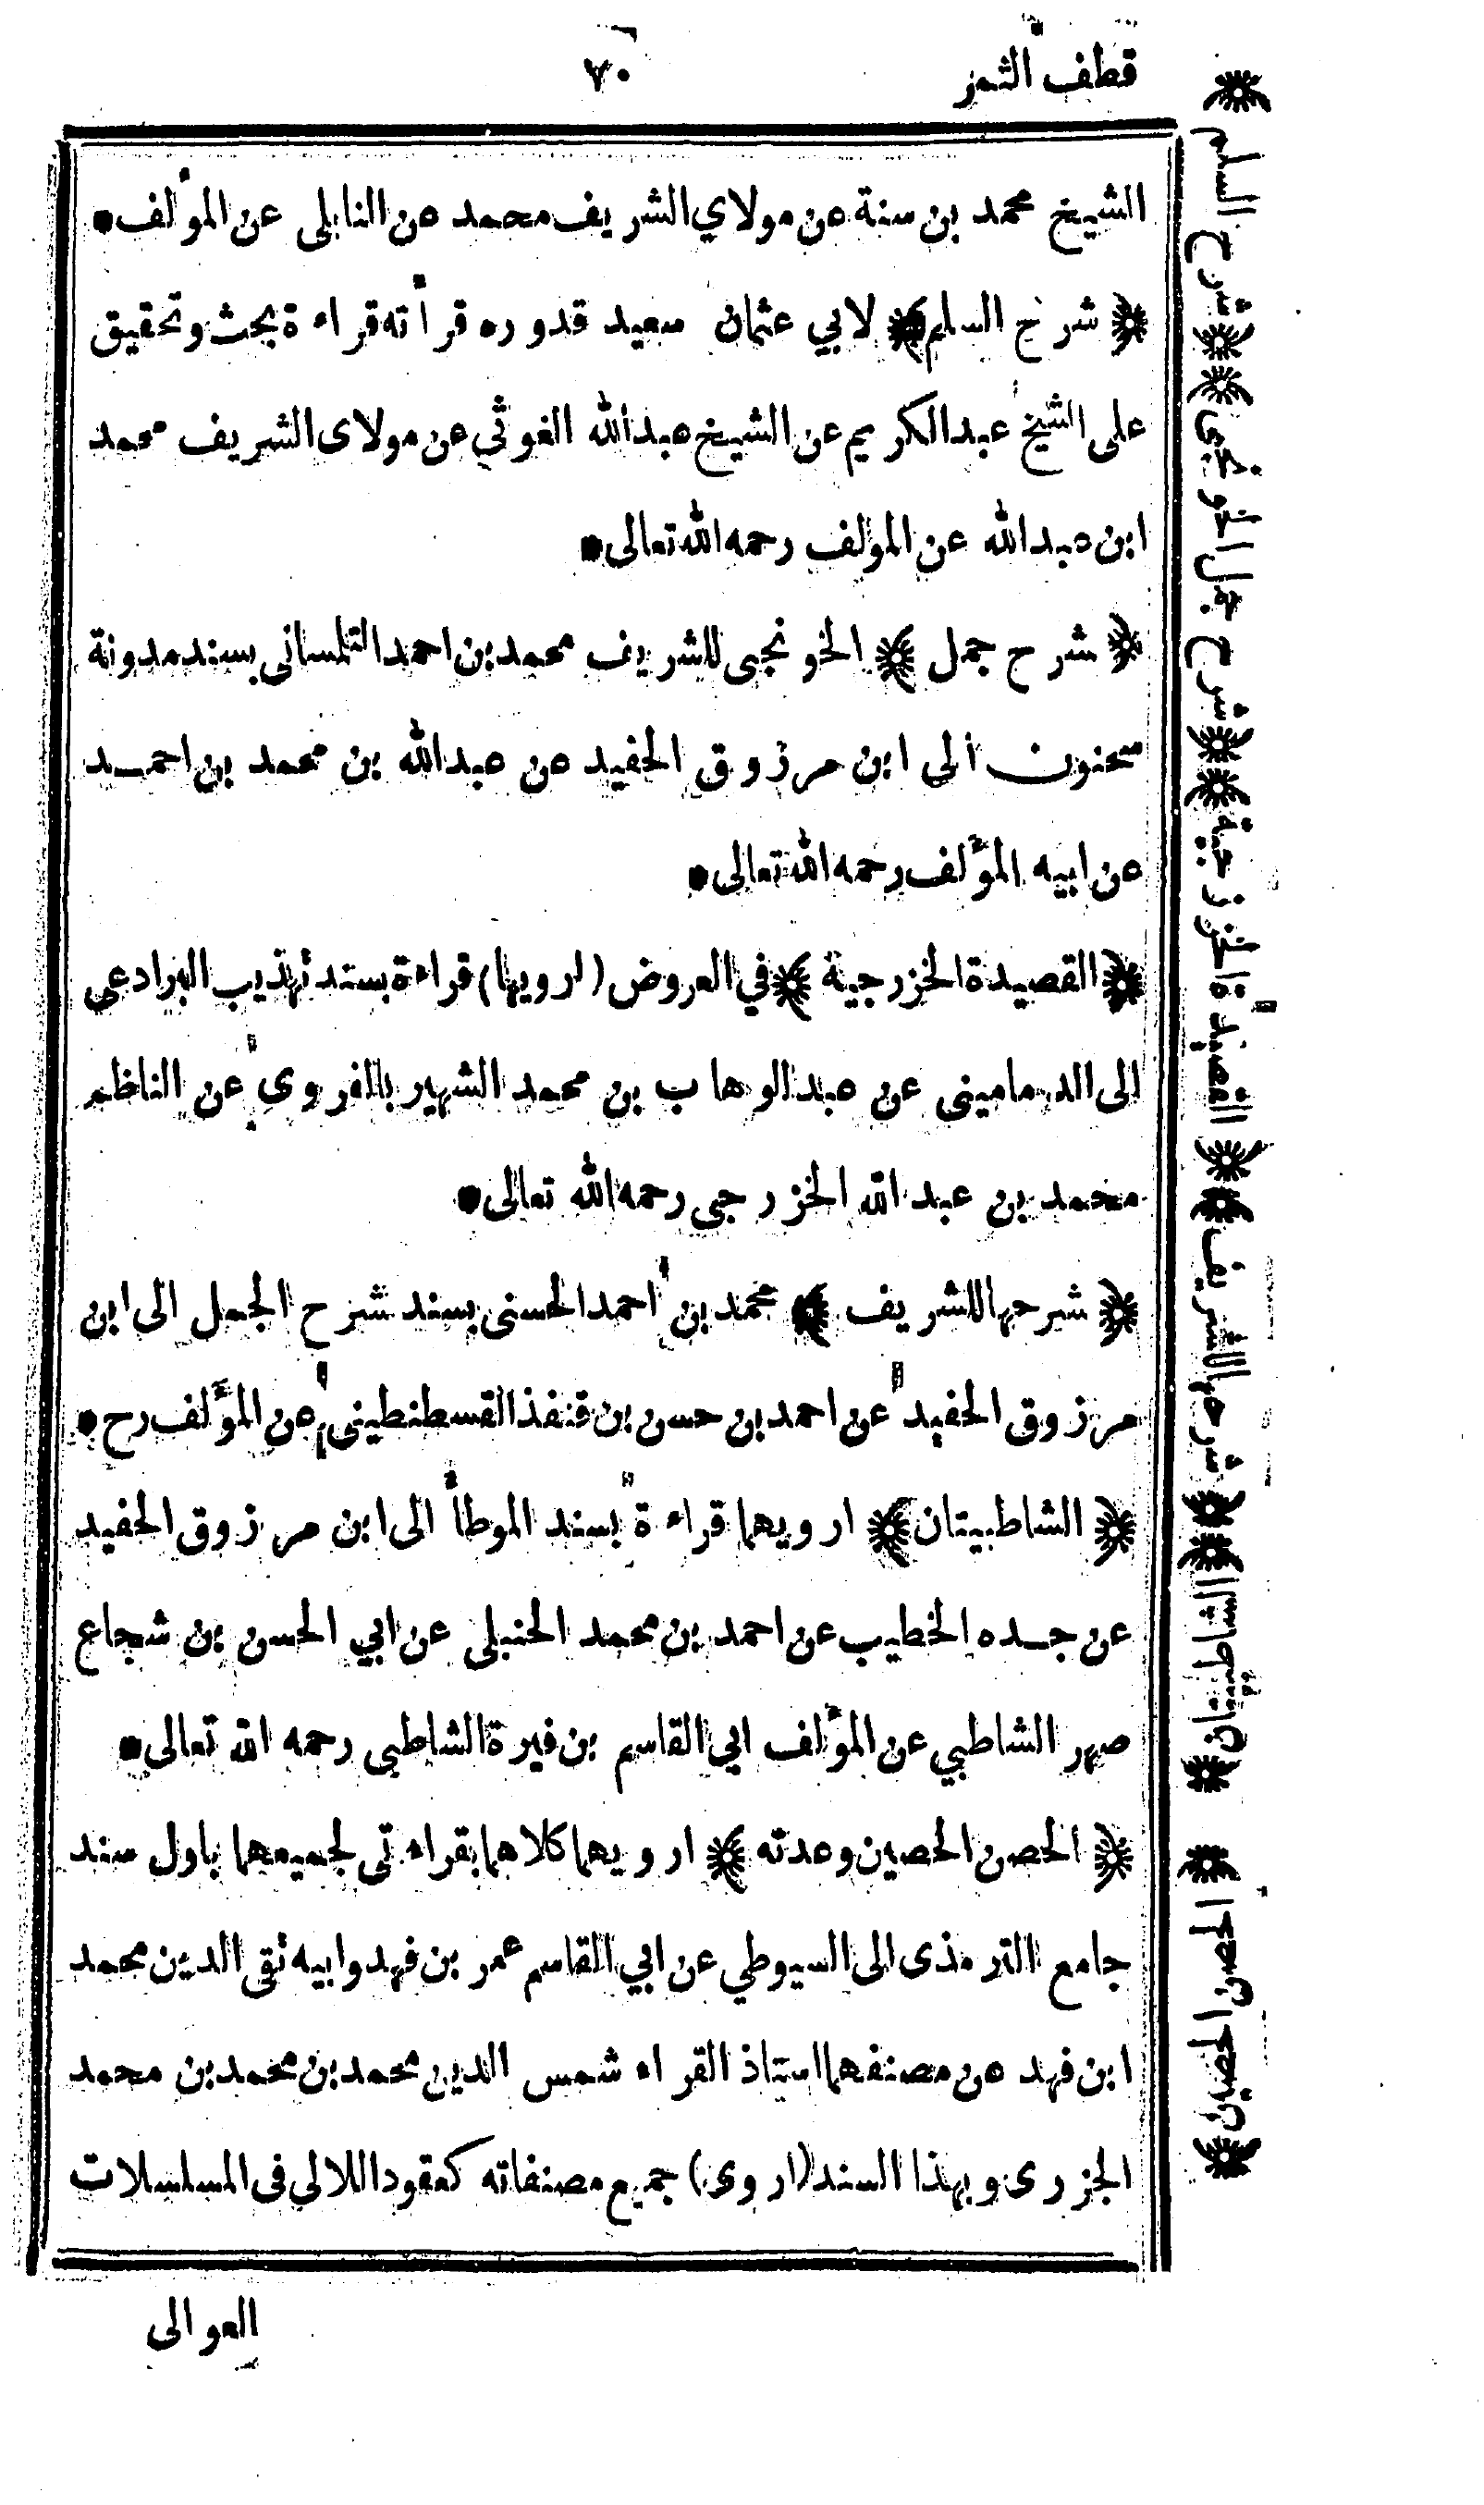 قطف الثمر
٧٠
الشيخ محمد بن سنة عن مولاي الشريف محمد عن النابلى عن المؤلف
﴿ شرح السلم ﴾ لابي عثمان سعيد قدوره قرأته قراءة بحث وتحقيق
على الشيخ عبدالكريم عن الشيخ عبدالله الغوثي عن مولاى الشريف محمد
ابن عبدالله عن المؤلف رحمه الله تعالى
﴿ شرح جمل ﴾ الخونجى للشريف محمد بن احمد التلمسانى بسند مدونة
سحنون الى ابن مرزوق الحفيد عن عبدالله بن محمد بن احمد
عن ابيه المؤلف رحمه الله تعالى
﴿ القصيدة الخزرجية ﴾ في العروض (ارويها) قراءة بسند تهذيب البرادعى
الى الدمامينى عن عبدالوهاب بن محمد الشهير بالفروى عن الناظم
محمد بن عبد الله الخزرجى رحمه الله تعالى
﴿ شرحها للشريف ﴾ محمد بن احمد الحسنى بسند شرح الجمل الى ابن
مرزوق الحفيد عن احمد بن حسن بن قنفذ القسطنطينى عن المؤلف رح
﴿ الشاطبيتان ﴾ ارويهما قراءة بسند الموطأ الى ابن مرزوق الحفيد
عن جده الخطيب عن احمد بن محمد الحنبلى عن ابي الحسن بن شجاع
صهر الشاطبي عن المؤلف ابي القاسم بن فيرة الشاطبى رحمه الله تعالى
﴿ الحصن الحصين وعدته ﴾ ارويهما كلاهما بقراءتى لجميعهما باول سند
جامع الترمذى الى السيوطي عن ابي القاسم عمر بن فهد وابيه تقى الدين محمد
ابن فهد عن مصنفهما استاذ القراء شمس الدين محمد بن محمد بن محمد
الجزرى وبهذا السند (اروى) جميع مصنفاته كعقود اللالي فى المسلسلات
العوالى
﴿ شرح السلم ﴾
﴿ شرح جمل الخونجى ﴾
﴿ القصيدة الخزرجية ﴾
﴿ شرحها للشريف ﴾
﴿ الشاطبيتان ﴾
﴿ الحصن الحصين ﴾